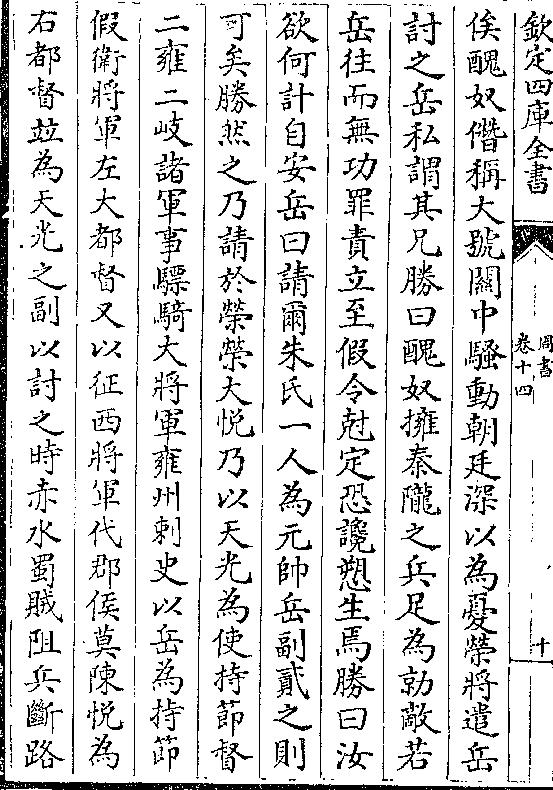 欽定四庫全書
周書
卷十四
十
俟醜奴僭稱大號關中騷動朝廷深以為憂榮將遣岳
討之岳私謂其兄勝曰醜奴擁秦隴之兵足為勍敵若
岳往而無功罪責立至假令尅定恐讒愬生焉勝曰汝
欲何計自安岳曰請爾朱氏一人為元帥岳副貳之則
可矣勝然之乃請於榮榮大悅乃以天光為使持節督
二雍二岐諸軍事驃騎大將軍雍州刺史以岳為持節
假衛將軍左大都督又以征西將軍代郡侯莫陳悅為
右都督並為天光之副以討之時赤水蜀賊阻兵斷路